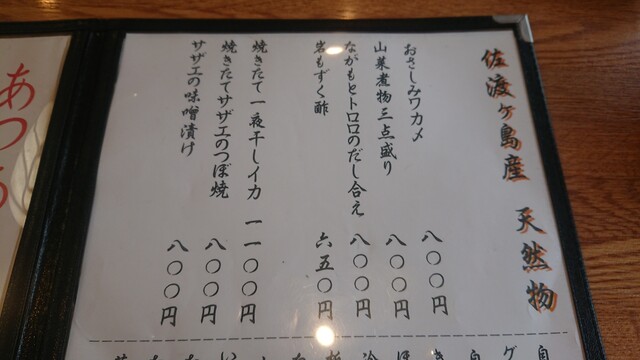 佐渡ヶ島産 天然物
おさしみワカメ 八〇〇円
山菜煮物三点盛り 八〇〇円
ながもとトロロのだし合え 八〇〇円
岩もずく酢 六五〇円
焼きたて一夜干しイカ 一一〇〇円
焼きたてサザエのつぼ焼 八〇〇円
サザエの味噌漬け 八〇〇円
あつ